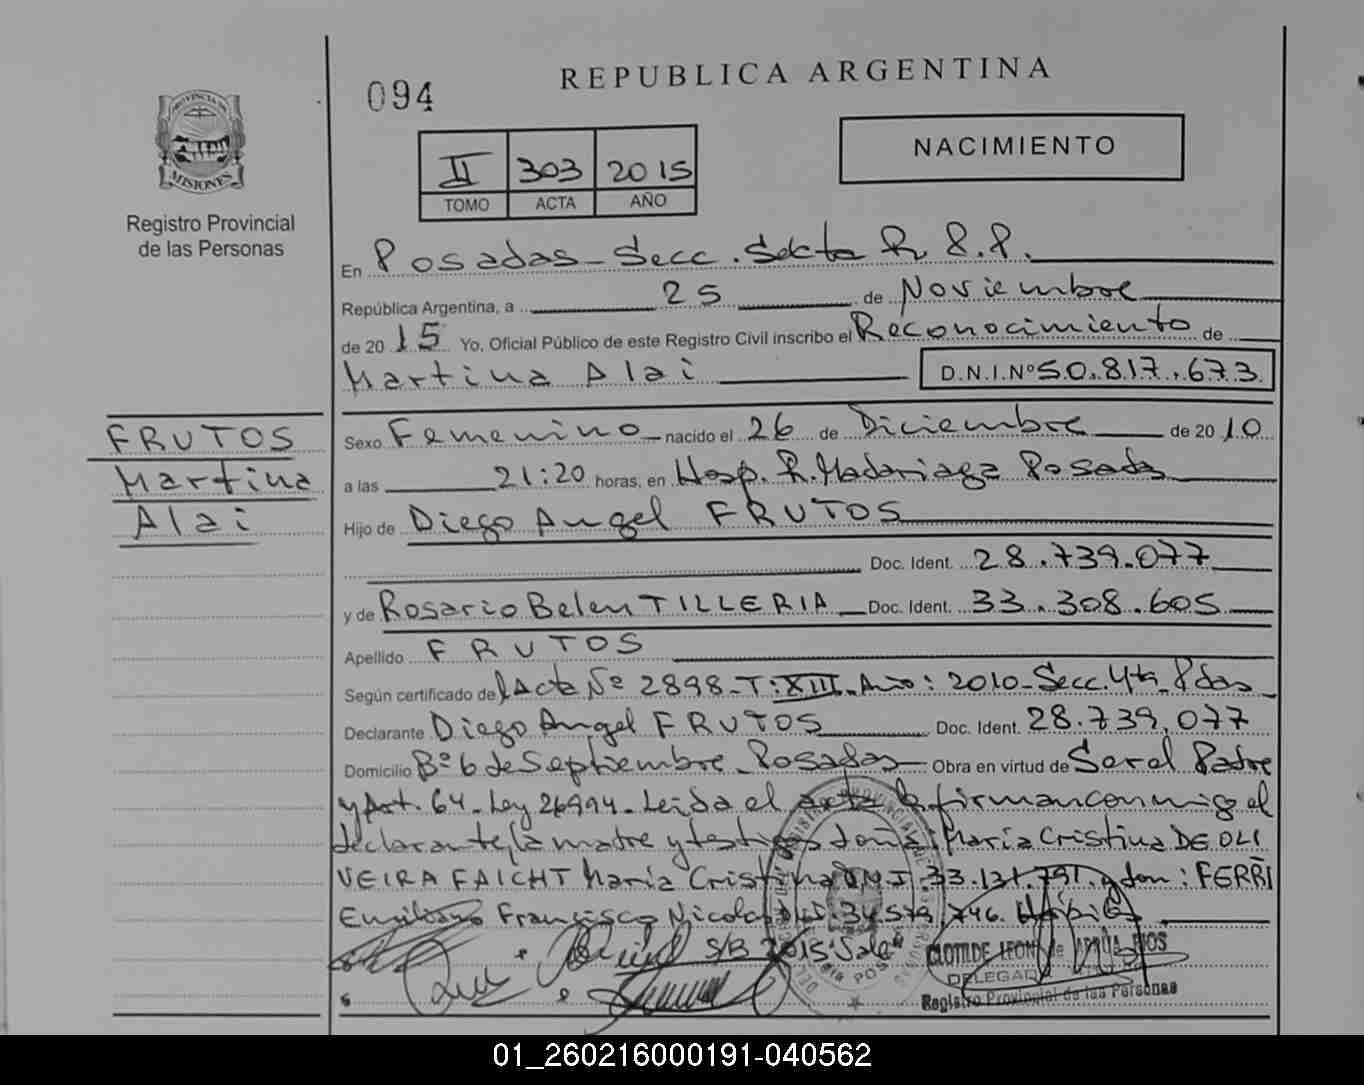 094
REPUBLICA ARGENTINA
PROVINCIA DE
MISIONES
Registro Provincial
de las Personas
II 303 2015
TOMO ACTA AÑO
NACIMIENTO
En Posadas - Secc. Sexta R. 8. P.
República Argentina, a 25 de Noviembre
de 2015 Yo, Oficial Público de este Registro Civil inscribo el Reconocimiento de
Martina Alai D.N.I.Nº 50.817.673
FRUTOS
Martina
Alai
Sexo Femenino nacido el 26 de Diciembre de 2010
a las 21:20 horas, en Hosp. R. Madariaga Posadas
Hijo de Diego Angel FRUTOS
Doc. Ident. 28.739.077
y de Rosario Belen TILLERIA Doc. Ident. 33.308.605
Apellido FRUTOS
Según certificado de Acta Nº 2898 - T: XIII - Año: 2010 - Secc. 4ta Pdas
Declarante Diego Angel FRUTOS Doc. Ident. 28.739.077
Domicilio Bº 6 de Septiembre - Posadas Obra en virtud de Ser el Padre
y Art. 64 - Ley 26994 - Leida el acta la firman conmigo el
declarante, la madre y testigos doña: Maria Cristina DE OLI
VEIRA FAICHT Maria Cristina DNI 33.131.791 y don: FERRI
Emiliano Francisco Nicolas DNI 34.579.746.
S/B 2015: Vale
CLOTILDE LEON de RIOS
DELEGADA
Registro Provincial de las Personas
01_260216000191-040562